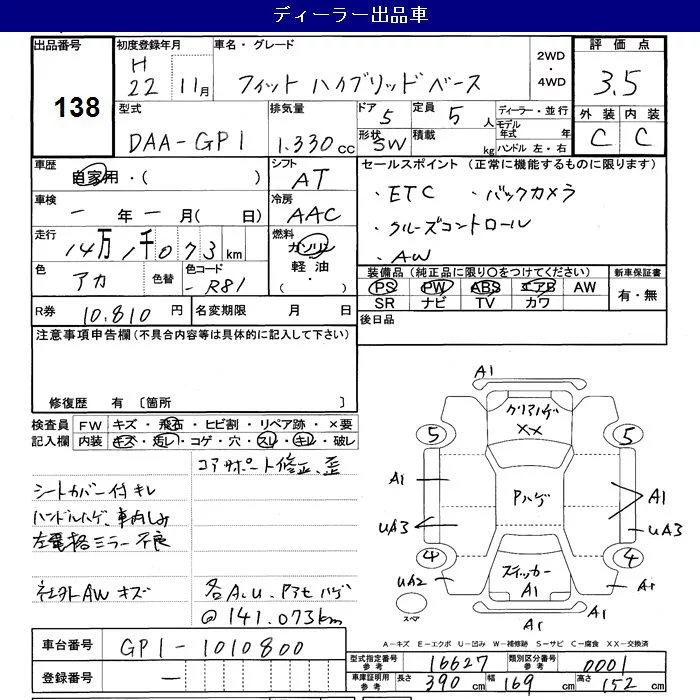 ディーラー出品車
出品番号
138
初度登録年月
H
22 11月
車名・グレード
フィット ハイブリッド ベース
2WD
・
4WD
評価点
3.5
外装 内装
C C
型式
DAA-GP1
排気量
1.330 cc
ドア
5
定員
5 人
形状
SW
積載
kg
ディーラー・並行
モデル
年式 年
ハンドル 左・右
車歴
自家用・( )
シフト
AT
車検
- 年 - 月( 日)
冷房
AAC
走行
14万1千073 km
燃料
ガソリン
軽油
・( )
色
アカ
色替
色コード
-R81
セールスポイント (正常に機能するものに限ります)
・ETC ・バックカメラ
・クルーズコントロール
・AW
装備品(純正品に限り○をつけてください)
PS PW ABS エアB AW
SR ナビ TV カワ
新車保証書
有・無
R券
10.810 円
名変期限 月 日
後日品
注意事項申告欄(不具合内容等は具体的に記入して下さい)
修復歴 有 〔箇所 〕
検査員
記入欄
FW キズ・飛石・ヒビ割・リペア跡・×要
内装 キズ・汚レ・コゲ・穴・スレ・キレ・破レ
コアサポート修正、歪
シートカバー付キレ
ハンドルハゲ、車内しみ
左電格ミラー不良
社外AW キズ
各A.U.PアセハゲI
@141.073km
A1
クリアハゲ
XX
5 5
A1
Pハゲ
A1
UA3
UA3
4 4
UA2
スティッカー
A1
A1
A1
スペア
A1
A-キズ E-エクボ U-凹み W-補修跡 S-サビ C-腐食 XX-交換済
車台番号
GP1-1010800
登録番号
-
型式指定番号
参考
16627
類別区分番号
参考
0001
車庫証明用
参考
長さ 390 cm 幅 169 cm 高さ 152 cm